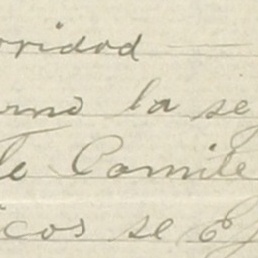 oridad
erno la se
le Comite
icos se Ej